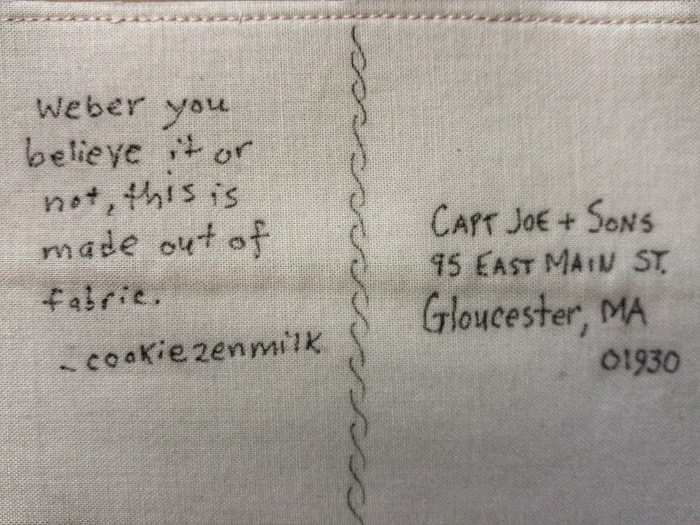 Weber you
believe it or
not, this is
made out of
fabric.
- cookiezenmilk
CAPT JOE + SONS
95 EAST MAIN ST.
Gloucester, MA
01930